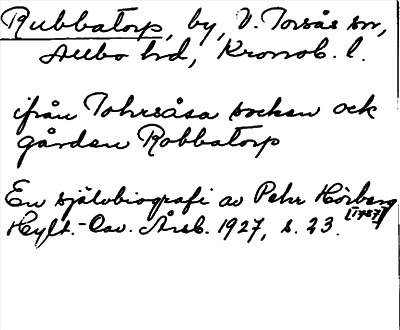 Rubbatorp, by, V. Torsås sn,
Allbo hd, Kronob. l.
ifrån Tohrsåsa socken ock
gården Robbatorp
En självbiografi av Pehr Hörberg
[1787]
Hylt.-Cav. Årsb. 1927, s. 23.